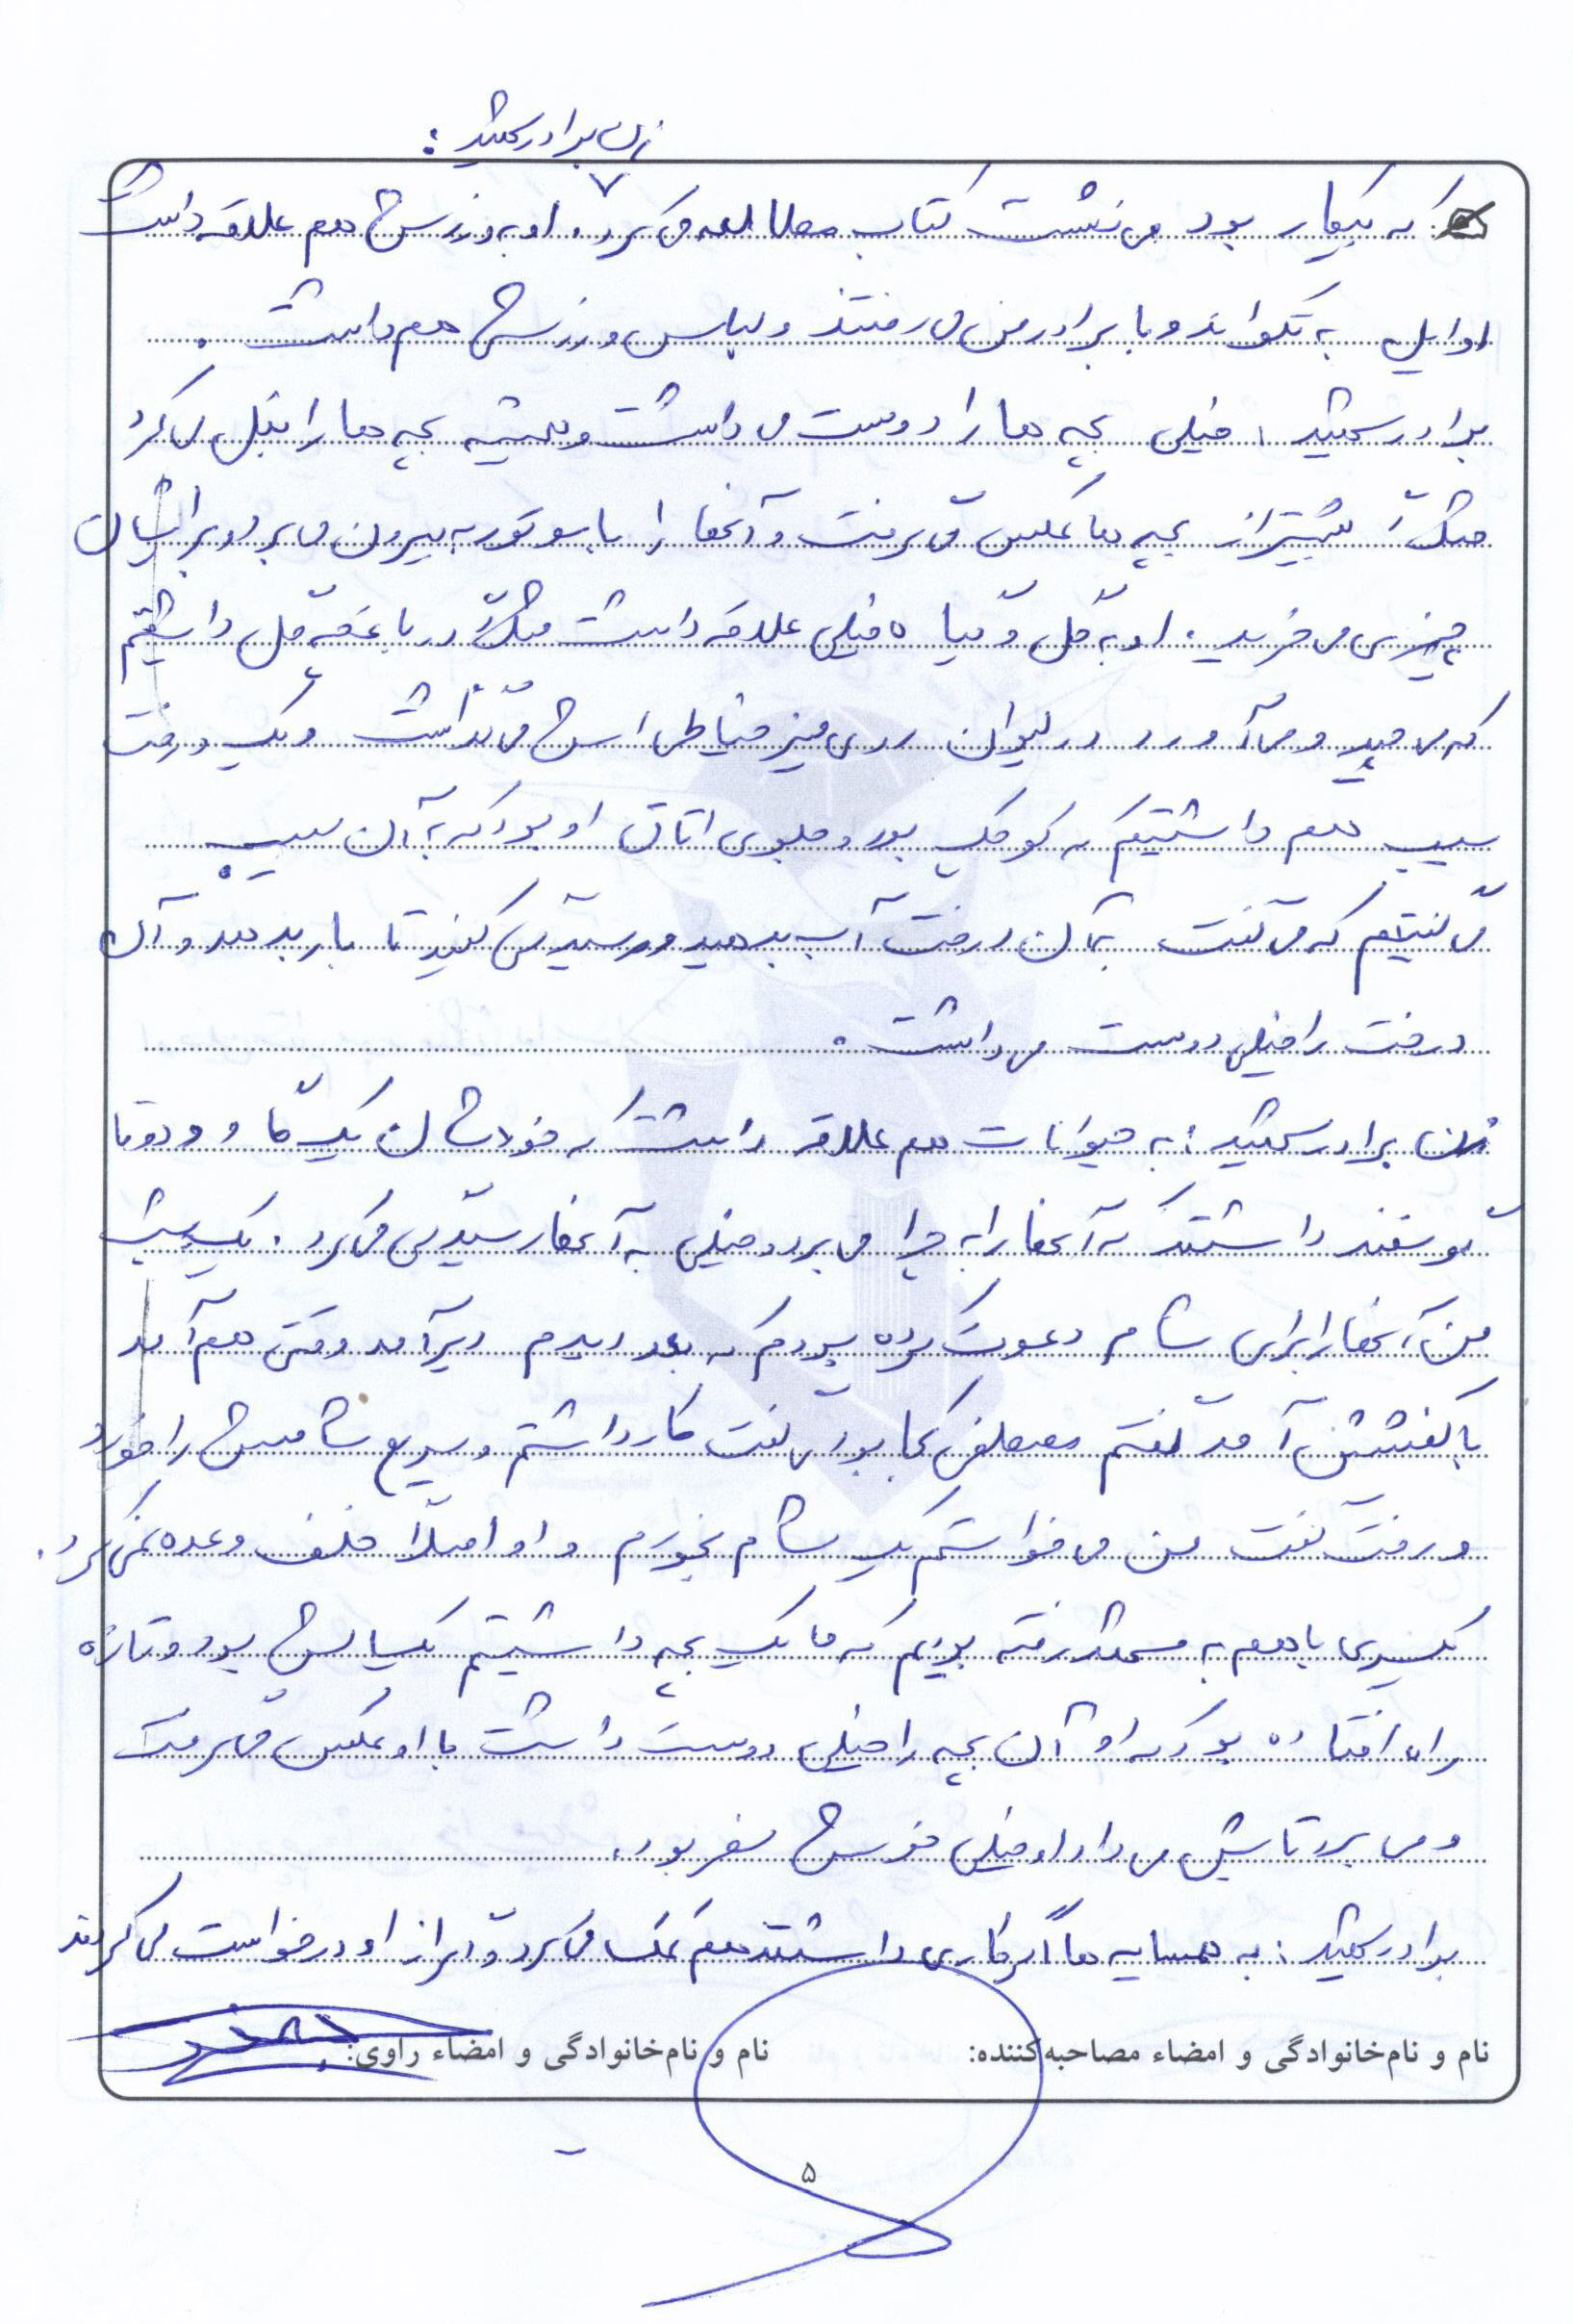 زن برادر شهید:
که بیکار بود می نشست کتاب مطالعه می کرد. او به ورزش هم علاقه داشت
اوایل به تکواندو با برادر من می رفتند و لباس ورزش هم داشت.
برادر شهید: خیلی بچه ها را دوست می داشت و همیشه بچه ها را بغل می کرد
مثلاً بیشتر از بچه ها عکس می گرفت و آنها را با موتور به بیرون می برد و برایشان
چیزی می خرید. او به گل و گیاه خیلی علاقه داشت مثلاً در باغچه گل داشتیم
که می چید و می آورد در لیوان روی میز خیاطی اش می گذاشت و یک درخت
سیب هم داشتیم که کوچک بود و جلوی اتاق او بود که به آن سیب
می گفتیم که می گفت به آن درخت آب بدهید و رسیدگی کنید تا بار بدهد و آن
درخت را خیلی دوست می داشت.
زن برادر شهید: به حیوانات هم علاقه داشت که خودشان یک گاو و دوتا
گوسفند داشتند که آنها را به چرا می برد و خیلی به آنها رسیدگی می کرد. یک شب
من آنها را برای شام دعوت کرده بودم که بعد دیدم دیر آمد وقتی هم آمد
با کفشش آمد گفتم مصطفی کجا بودی گفت کار داشتم و سریع شامش را خورد
و رفت گفت من می خواستم یک شام بخورم و او اصلاً خلف وعده نمی کرد.
یکسری با هم به مشهد رفته بودیم که ما یک بچه داشتیم یکسالش بود و تازه
راه افتاده بود که او آن بچه را خیلی دوست داشت با او عکس می گرفت
و می برد تابش می داد او خیلی خوش سفر بود.
برادر شهید: به همسایه ها اگر کاری داشتند هم کمک می کرد و اگر از او درخواست می کردند
نام و نام‌خانوادگی و امضاء مصاحبه‌کننده: نام و نام‌خانوادگی و امضاء راوی:
۵